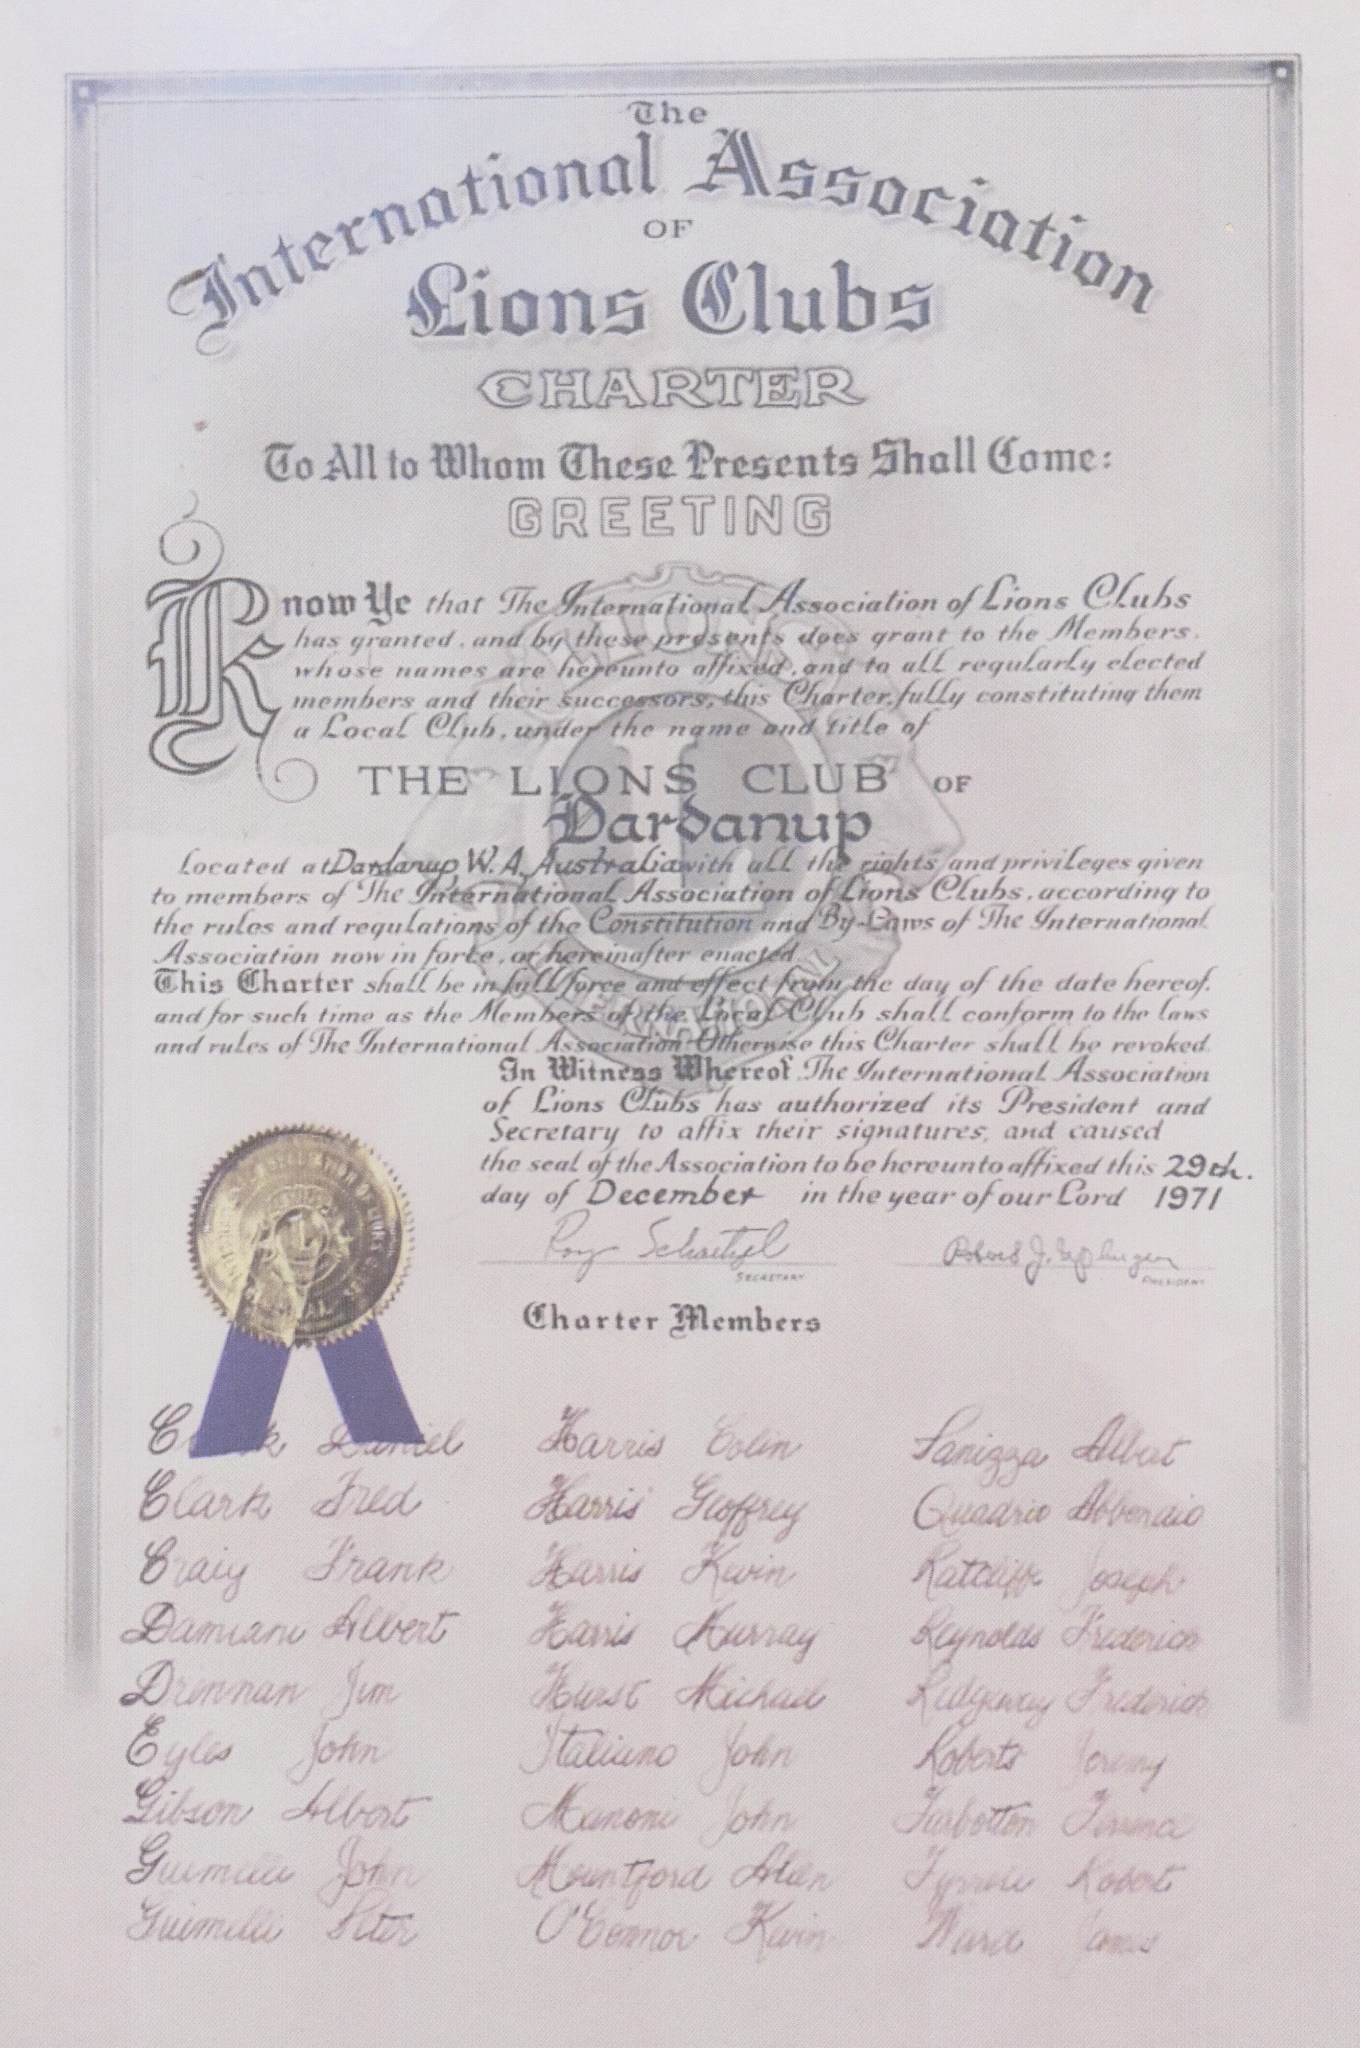 The
International Association
OF
Lions Clubs
CHARTER
To All to Whom These Presents Shall Come:
GREETING
Know Ye that The International Association of Lions Clubs
has granted, and by these presents does grant to the Members,
whose names are hereunto affixed, and to all regularly elected
members and their successors, this Charter, fully constituting them
a Local Club, under the name and title of
THE LIONS CLUB OF
Dardanup
Located at Dardanup W.A. Australia with all the rights and privileges given
to members of The International Association of Lions Clubs, according to
the rules and regulations of the Constitution and By-Laws of The International
Association now in force, or hereinafter enacted.
This Charter shall be in full force and effect from the day of the date hereof,
and for such time as the Members of the Local Club shall conform to the laws
and rules of The International Association Otherwise this Charter shall be revoked.
In Witness Whereof, The International Association
of Lions Clubs has authorized its President and
Secretary to affix their signatures, and caused
the seal of the Association to be hereunto affixed this 29th.
day of December in the year of our Lord 1971
Roy Schaetzel
Robert J.
SECRETARY
PRESIDENT
Charter Members
Daniel Harris Colin Panizza Albert
Clark Fred Harris Geoffrey Quadrio Abbondio
Craig Frank Harris Kevin Ratcliffe Joseph
Damiani Albert Harris Murray Reynolds Frederick
Drennan Jim Hurst Michael Ridgeway Frederick
Eyles John Italiano John Roberts Jeremy
Gibson Albert Manoni John Turbotton Terence
Giumelli John Mountford Allen Robert
Giumelli Peter O'Connor Kevin Ward James